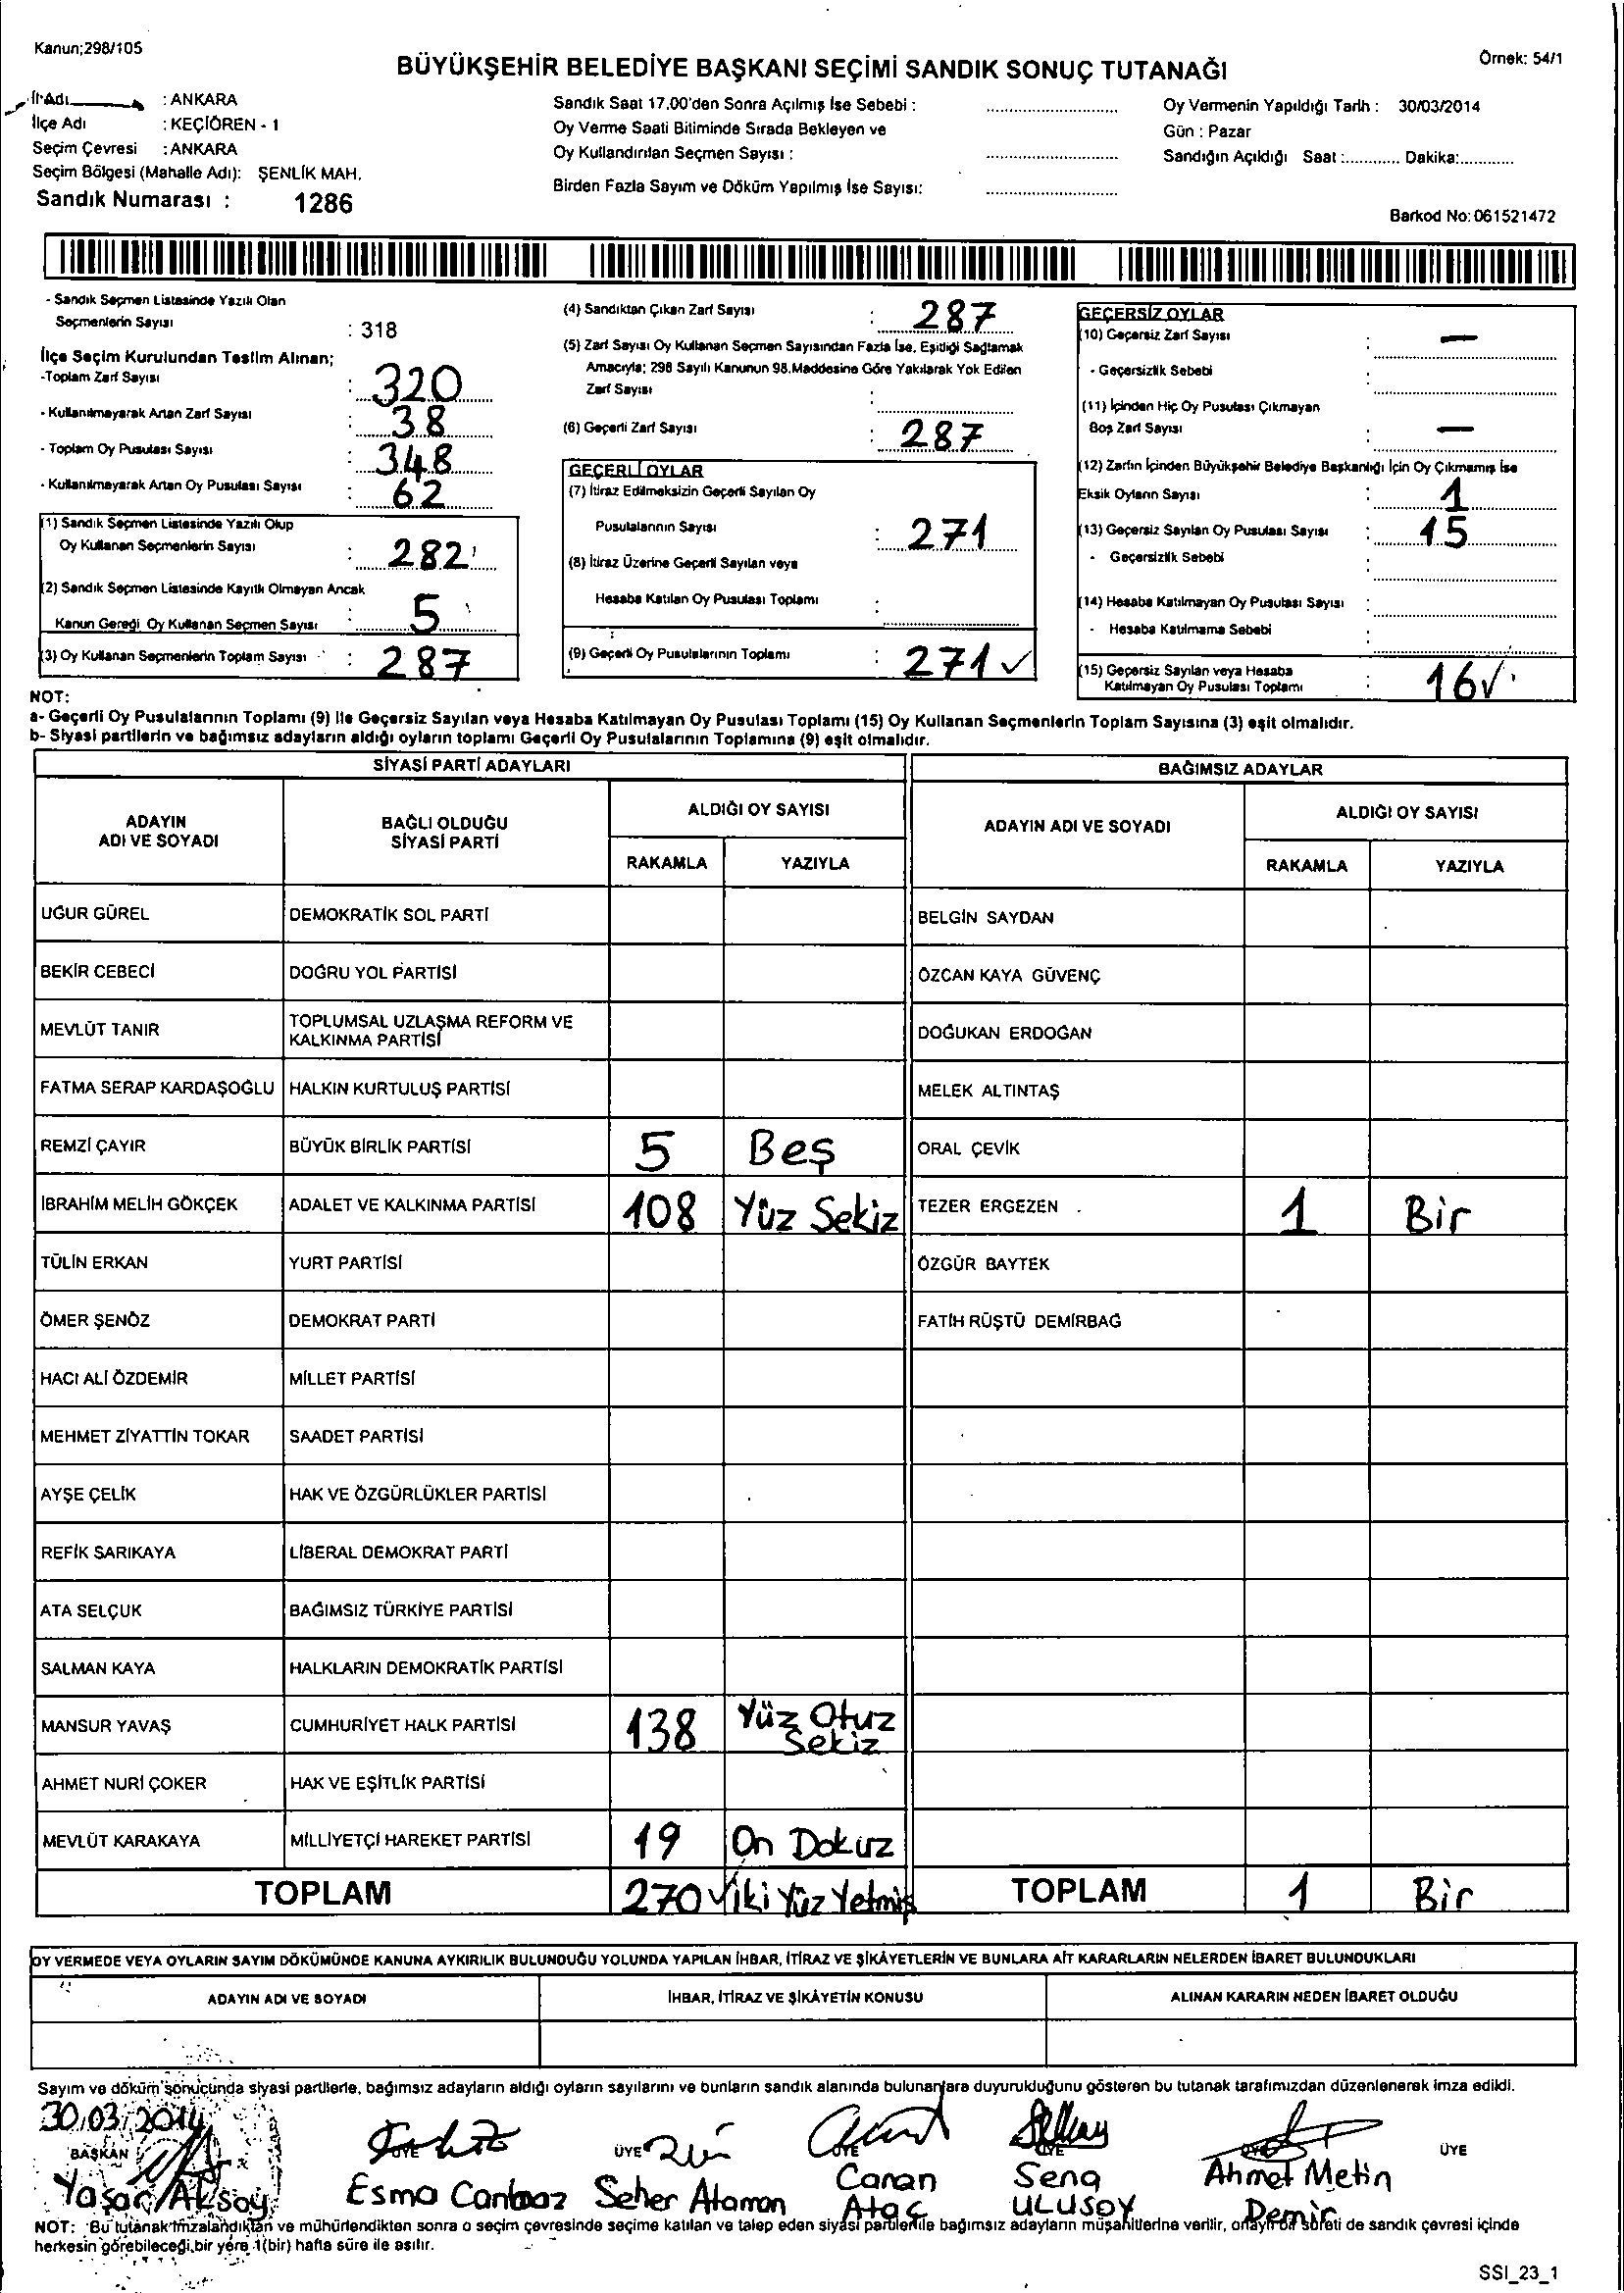 Kanun;298/105
BÜYÜKŞEHİR BELEDİYE BAŞKANI SEÇİMİ SANDIK SONUÇ TUTANAĞI
Örnek: 54/1
İl Adı : ANKARA
İlçe Adı : KEÇİÖREN - 1
Seçim Çevresi : ANKARA
Seçim Bölgesi (Mahalle Adı): ŞENLİK MAH.
Sandık Numarası : 1286
Sandık Saat 17.00'den Sonra Açılmış İse Sebebi :
Oy Verme Saati Bitiminde Sırada Bekleyen ve
Oy Kullandırılan Seçmen Sayısı :
Birden Fazla Sayım ve Döküm Yapılmış İse Sayısı:
Oy Vermenin Yapıldığı Tarih : 30/03/2014
Gün : Pazar
Sandığın Açıldığı Saat :............ Dakika:............
Barkod No: 061521472
- Sandık Seçmen Listesinde Yazılı Olan
Seçmenlerin Sayısı : 318
İlçe Seçim Kurulundan Teslim Alınan;
-Toplam Zarf Sayısı : 320
- Kullanılmayarak Artan Zarf Sayısı : 38
- Toplam Oy Pusulası Sayısı : 348
- Kullanılmayarak Artan Oy Pusulası Sayısı : 62
(1) Sandık Seçmen Listesinde Yazılı Olup
Oy Kullanan Seçmenlerin Sayısı : 282
(2) Sandık Seçmen Listesinde Kayıtlı Olmayan Ancak
Kanun Gereği Oy Kullanan Seçmen Sayısı : 5
(3) Oy Kullanan Seçmenlerin Toplam Sayısı : 287
(4) Sandıktan Çıkan Zarf Sayısı : 287
(5) Zarf Sayısı Oy Kullanan Seçmen Sayısından Fazla İse, Eşitliği Sağlamak
Amacıyla; 298 Sayılı Kanunun 98.Maddesine Göre Yakılarak Yok Edilen
Zarf Sayısı :
(6) Geçerli Zarf Sayısı : 287
GEÇERLİ OYLAR
(7) İtiraz Edilmeksizin Geçerli Sayılan Oy
Pusulalarının Sayısı : 271
(8) İtiraz Üzerine Geçerli Sayılan veya
Hesaba Katılan Oy Pusulası Toplamı :
(9) Geçerli Oy Pusulalarının Toplamı : 271 ✓
GEÇERSİZ OYLAR
(10) Geçersiz Zarf Sayısı : —
- Geçersizlik Sebebi :
(11) İçinden Hiç Oy Pusulası Çıkmayan
Boş Zarf Sayısı : —
(12) Zarfın İçinden Büyükşehir Belediye Başkanlığı İçin Oy Çıkmamış İse
Eksik Oyların Sayısı : 1
(13) Geçersiz Sayılan Oy Pusulası Sayısı : 15
- Geçersizlik Sebebi :
(14) Hesaba Katılmayan Oy Pusulası Sayısı :
- Hesaba Katılmama Sebebi :
(15) Geçersiz Sayılan veya Hesaba
Katılmayan Oy Pusulası Toplamı : 16 ✓
NOT:
a- Geçerli Oy Pusulalarının Toplamı (9) ile Geçersiz Sayılan veya Hesaba Katılmayan Oy Pusulası Toplamı (15) Oy Kullanan Seçmenlerin Toplam Sayısına (3) eşit olmalıdır.
b- Siyasi partilerin ve bağımsız adayların aldığı oyların toplamı Geçerli Oy Pusulalarının Toplamına (9) eşit olmalıdır.
SİYASİ PARTİ ADAYLARI
ADAYIN ADI VE SOYADI BAĞLI OLDUĞU SİYASİ PARTİ ALDIĞI OY SAYISI
RAKAMLA YAZIYLA
UĞUR GÜREL DEMOKRATİK SOL PARTİ
BEKİR CEBECİ DOĞRU YOL PARTİSİ
MEVLÜT TANIR TOPLUMSAL UZLAŞMA REFORM VE
KALKINMA PARTİSİ
FATMA SERAP KARDAŞOĞLU HALKIN KURTULUŞ PARTİSİ
REMZİ ÇAYIR BÜYÜK BİRLİK PARTİSİ 5 Beş
İBRAHİM MELİH GÖKÇEK ADALET VE KALKINMA PARTİSİ 108 Yüz Sekiz
TÜLİN ERKAN YURT PARTİSİ
ÖMER ŞENÖZ DEMOKRAT PARTİ
HACI ALİ ÖZDEMİR MİLLET PARTİSİ
MEHMET ZİYATTİN TOKAR SAADET PARTİSİ
AYŞE ÇELİK HAK VE ÖZGÜRLÜKLER PARTİSİ
REFİK SARIKAYA LİBERAL DEMOKRAT PARTİ
ATA SELÇUK BAĞIMSIZ TÜRKİYE PARTİSİ
SALMAN KAYA HALKLARIN DEMOKRATİK PARTİSİ
MANSUR YAVAŞ CUMHURİYET HALK PARTİSİ 138 Yüz Otuz
Sekiz
AHMET NURİ ÇOKER HAK VE EŞİTLİK PARTİSİ
MEVLÜT KARAKAYA MİLLİYETÇİ HAREKET PARTİSİ 19 On Dokuz
TOPLAM 270 ✓ İki Yüz Yetmiş
BAĞIMSIZ ADAYLAR
ADAYIN ADI VE SOYADI ALDIĞI OY SAYISI
RAKAMLA YAZIYLA
BELGİN SAYDAN
ÖZCAN KAYA GÜVENÇ
DOĞUKAN ERDOĞAN
MELEK ALTINTAŞ
ORAL ÇEVİK
TEZER ERGEZEN 1 Bir
ÖZGÜR BAYTEK
FATİH RÜŞTÜ DEMİRBAĞ
TOPLAM 1 Bir
OY VERMEDE VEYA OYLARIN SAYIM DÖKÜMÜNDE KANUNA AYKIRILIK BULUNDUĞU YOLUNDA YAPILAN İHBAR, İTİRAZ VE ŞİKÂYETLERİN VE BUNLARA AİT KARARLARIN NELERDEN İBARET BULUNDUKLARI
ADAYIN ADI VE SOYADI İHBAR, İTİRAZ VE ŞİKÂYETİN KONUSU ALINAN KARARIN NEDEN İBARET OLDUĞU
Sayım ve döküm sonucunda siyasi partilerle, bağımsız adayların aldığı oyların sayılarını ve bunların sandık alanında bulunanlara duyurukluğunu gösteren bu tutanak tarafımızdan düzenlenerek imza edildi.
30.03.2014
BAŞKAN ÜYE ÜYE ÜYE ÜYE ÜYE ÜYE
Yaşar Aksoy Esma Canbaz Seher Ataman Canan Ataç Sena ULUSOY Ahmet Metin Demir
NOT: Bu tutanak imzalandıktan ve mühürlendikten sonra o seçim çevresinde seçime katılan ve talep eden siyasi partilerle bağımsız adayların müşahitlerine verilir, onaylı bir sureti de sandık çevresi içinde
herkesin görebileceği bir yere 1(bir) hafta süre ile asılır.
SSI_23_1